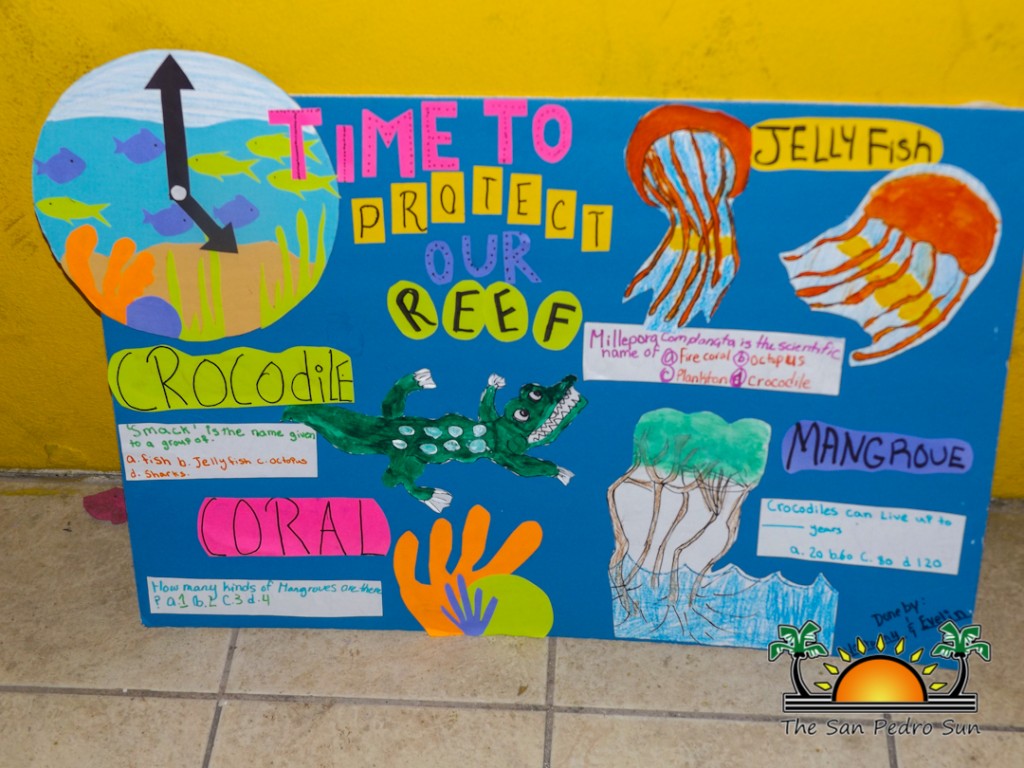 TIME TO
PROTECT
OUR
REEF
JELLY Fish
Millepora Complanata is the scientific
name of a fire coral b octopus
c Plankton d Crocodile
CROCODiLE
'Smack' is the name given
to a group of:
a. fish b. Jellyfish c. octopus
d. sharks.
MANGROVE
Crocodiles can Live up to
____ years
a. 20 b. 60 c. 80 d. 120
CORAL
How many kinds of Mangroves are there
? a. 1 b. 2 c. 3 d. 4
Done by:
& Evelin
The San Pedro Sun